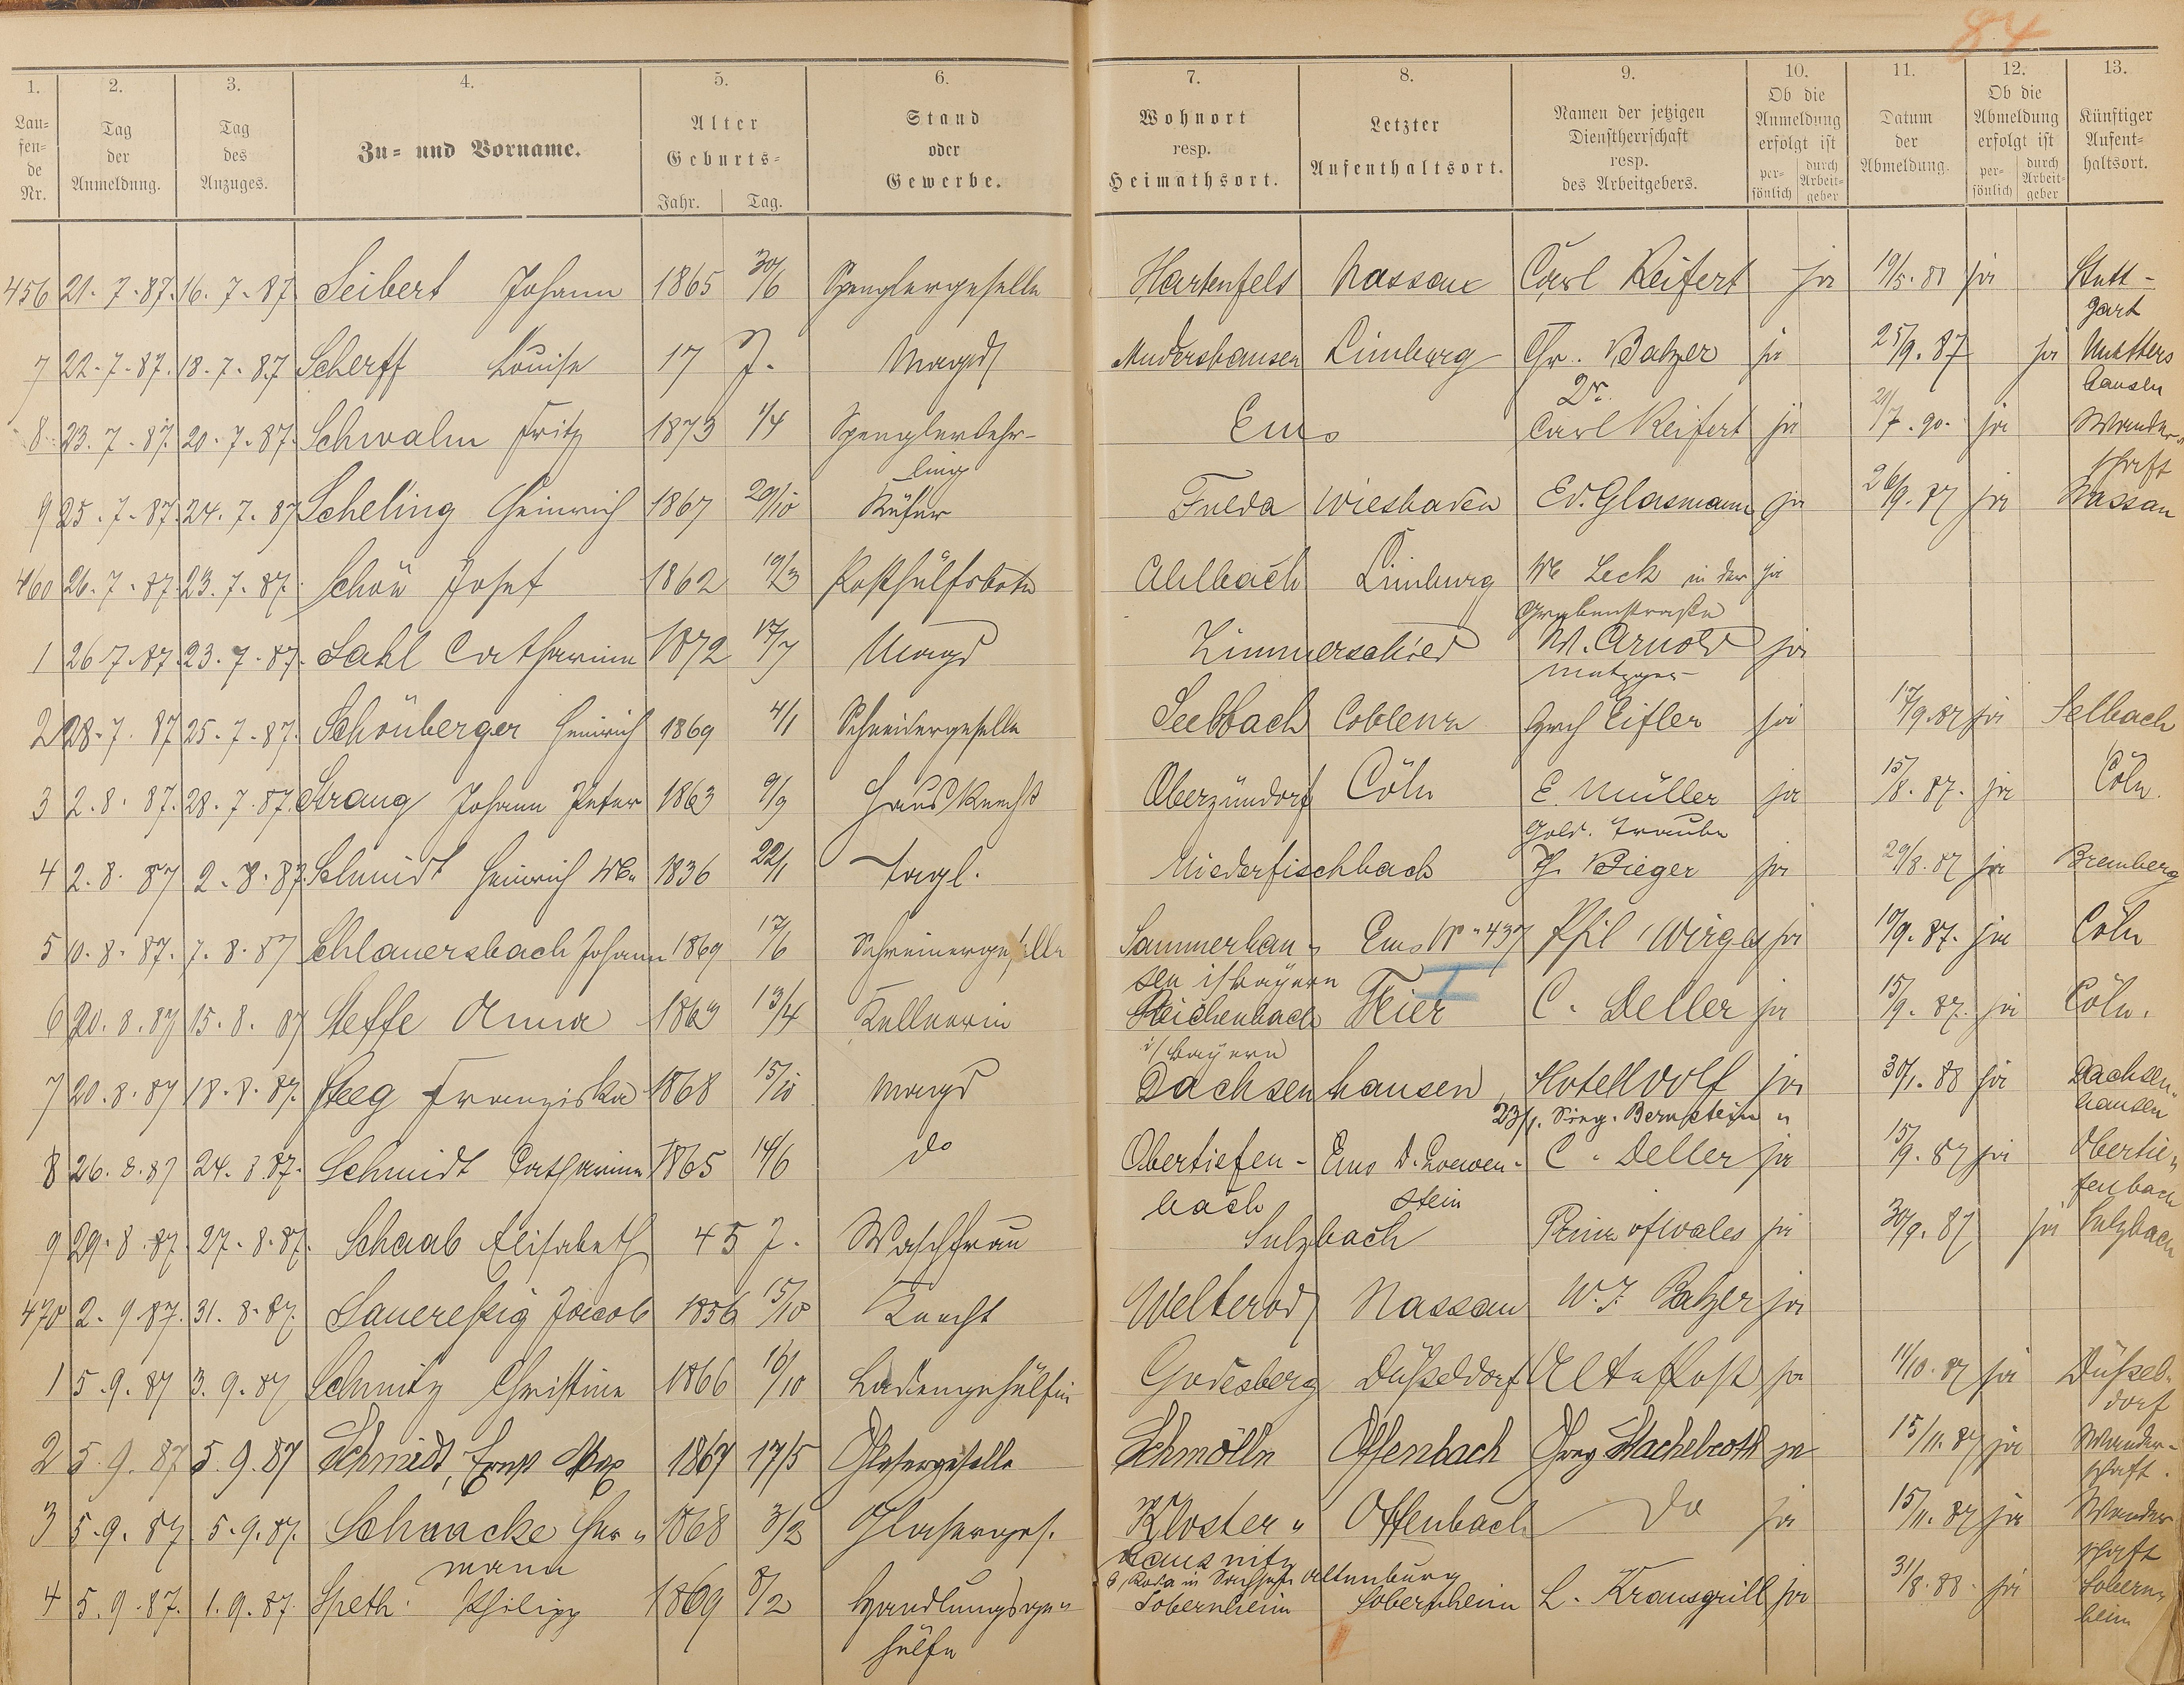 84
1. 2. 3. 4. 5. 6. 7. 8. 9. 10. 11. 12. 13.
Lau=fen=de Nr. Tag der Anmeldung. Tag des Anzuges. Zu= und Vorname. Alter Geburts= Jahr. Tag. Stand oder Gewerbe. Wohnort resp. Heimathsort. Letzter Aufenthaltsort. Namen der jetzigen Dienstherrschaft resp. des Arbeitgebers. Ob die Anmeldung erfolgt ist per=sönlich durch Arbeit=geber Datum der Abmeldung. Ob die Abmeldung erfolgt ist per=sönlich durch Arbeit=geber Künftiger Aufent=haltsort.
456 21. 7. 87. 16. 7. 87 Seibert Johann 1865 30/6 Spenglergeselle Hartenfels Nassau Carl Reifert ja 19/5. 88 ja Stutt-
gart
7 22. 7. 87. 18. 7. 87 Scherff Louise 17 J. Magd Mudershausen Limburg Chr. Balzer ja 25/9. 87 ja
2r. hausen
8 23. 7. 87. 20. 7. 87. Schwalm Fritz 1873 1/4 Spenglerlehr- Ems Carl Reifert ja 21/7. 90. ja Wander-
ling schaft
9 25. 7. 87. 24. 7. 87 Scheling Heinrich 1867 29/10 Küfer Fulda Wiesbaden Ed. Glasmann ja 26/9. 87 ja Nassau
460 26. 7. 87. 23. 7. 87. Schön Josef 1862 19/3 Posthülfsbote Ahlbach Limburg We Leck in der ja
Grabenstraße
1 26. 7. 87. 23. 7. 87. Sahl Catharina 1872 17/7 Magd Zimmerschied W. Arnold ja
Metzger
2 28. 7. 87 25. 7. 87. Schönberger Heinrich 1869 4/1 Schneidergeselle Seelbach Coblenz Hrch Eifler ja 17/9. 87 ja Selbach
3 2. 8. 87. 28. 7. 87. Strang Johann Peter 1863 9/9 Hausknecht Oberzündorf Cöln E. Müller ja 15/8. 87. ja Cöln.
Gold. Traube
4 2. 8. 87 2. 8. 87. Schmidt Heinrich We. 1836 22/1 Tagl. Niederfischbach Th. Bieger ja 29/8. 87 ja Bremberg
5 10. 8. 87. 7. 8. 87 Schlauersbach Johann 1869 17/6 Schreinergeselle Sammerhau- Ems No. 437 Phil. Wirges ja 10/9. 87. ja Cöln
sen i/Bayern I
6 20. 8. 87 15. 8. 87 Steffe Anna 1863 13/4 Kellnerin Reichenbach Trier C. Deller ja 15/9. 87. ja Cöln.
i/Bayern
7 20. 8. 87 18. 8. 87. Steeg Franziska 1868 15/10 Magd Dachsenhausen Hotel Wolf ja 30/1. 88 ja Dachsen-
23/1. Sieg. Bernstein hausen
8 26. 8. 87 24. 8. 87. Schmidt Catharina 1865 14/6 do Obertiefen- Ems D. Loewen- C. Deller ja 15/9. 87 ja Obertie-
bach stein fenbach
9 29. 8. 87. 27. 8. 87. Schaab Elisabeth 45 J. Waschfrau Sulzbach Prinz of wales ja 30/9. 87 ja Sulzbach
470 2. 9. 87. 31. 8. 87. Saueressig Jacob 1856 15/10 Knecht Welterod Nassau W. J. Balzer ja
1 5. 9. 87 3. 9. 87 Schmitz Christine 1866 16/10 Ladengehülfin Godesberg Düsseldorf Alte Post ja 11/10. 87 ja Düssel-
dorf
2 5. 9. 87 5. 9. 87 Schmidt, Ernst Max 1867 17/5 Glasergeselle Schmölln Offenbach Georg Stachelroth ja 15/11. 87 ja Wander-
schaft.
3 5. 9. 87 5. 9. 87. Schaacke Her- 1868 3/2 Glaserges. Kloster- Offenbach do ja 15/11. 87 ja Wander-
mann lausnitz schaft
Roda in Sachsen Altenburg
4 5. 9. 87. 1. 9. 87. Speth Philipp 1869 8/2 Handlungsge- Sobernheim Sobernheim L. Krausgrill ja 31/8. 88. ja Sobern-
hülfe heim